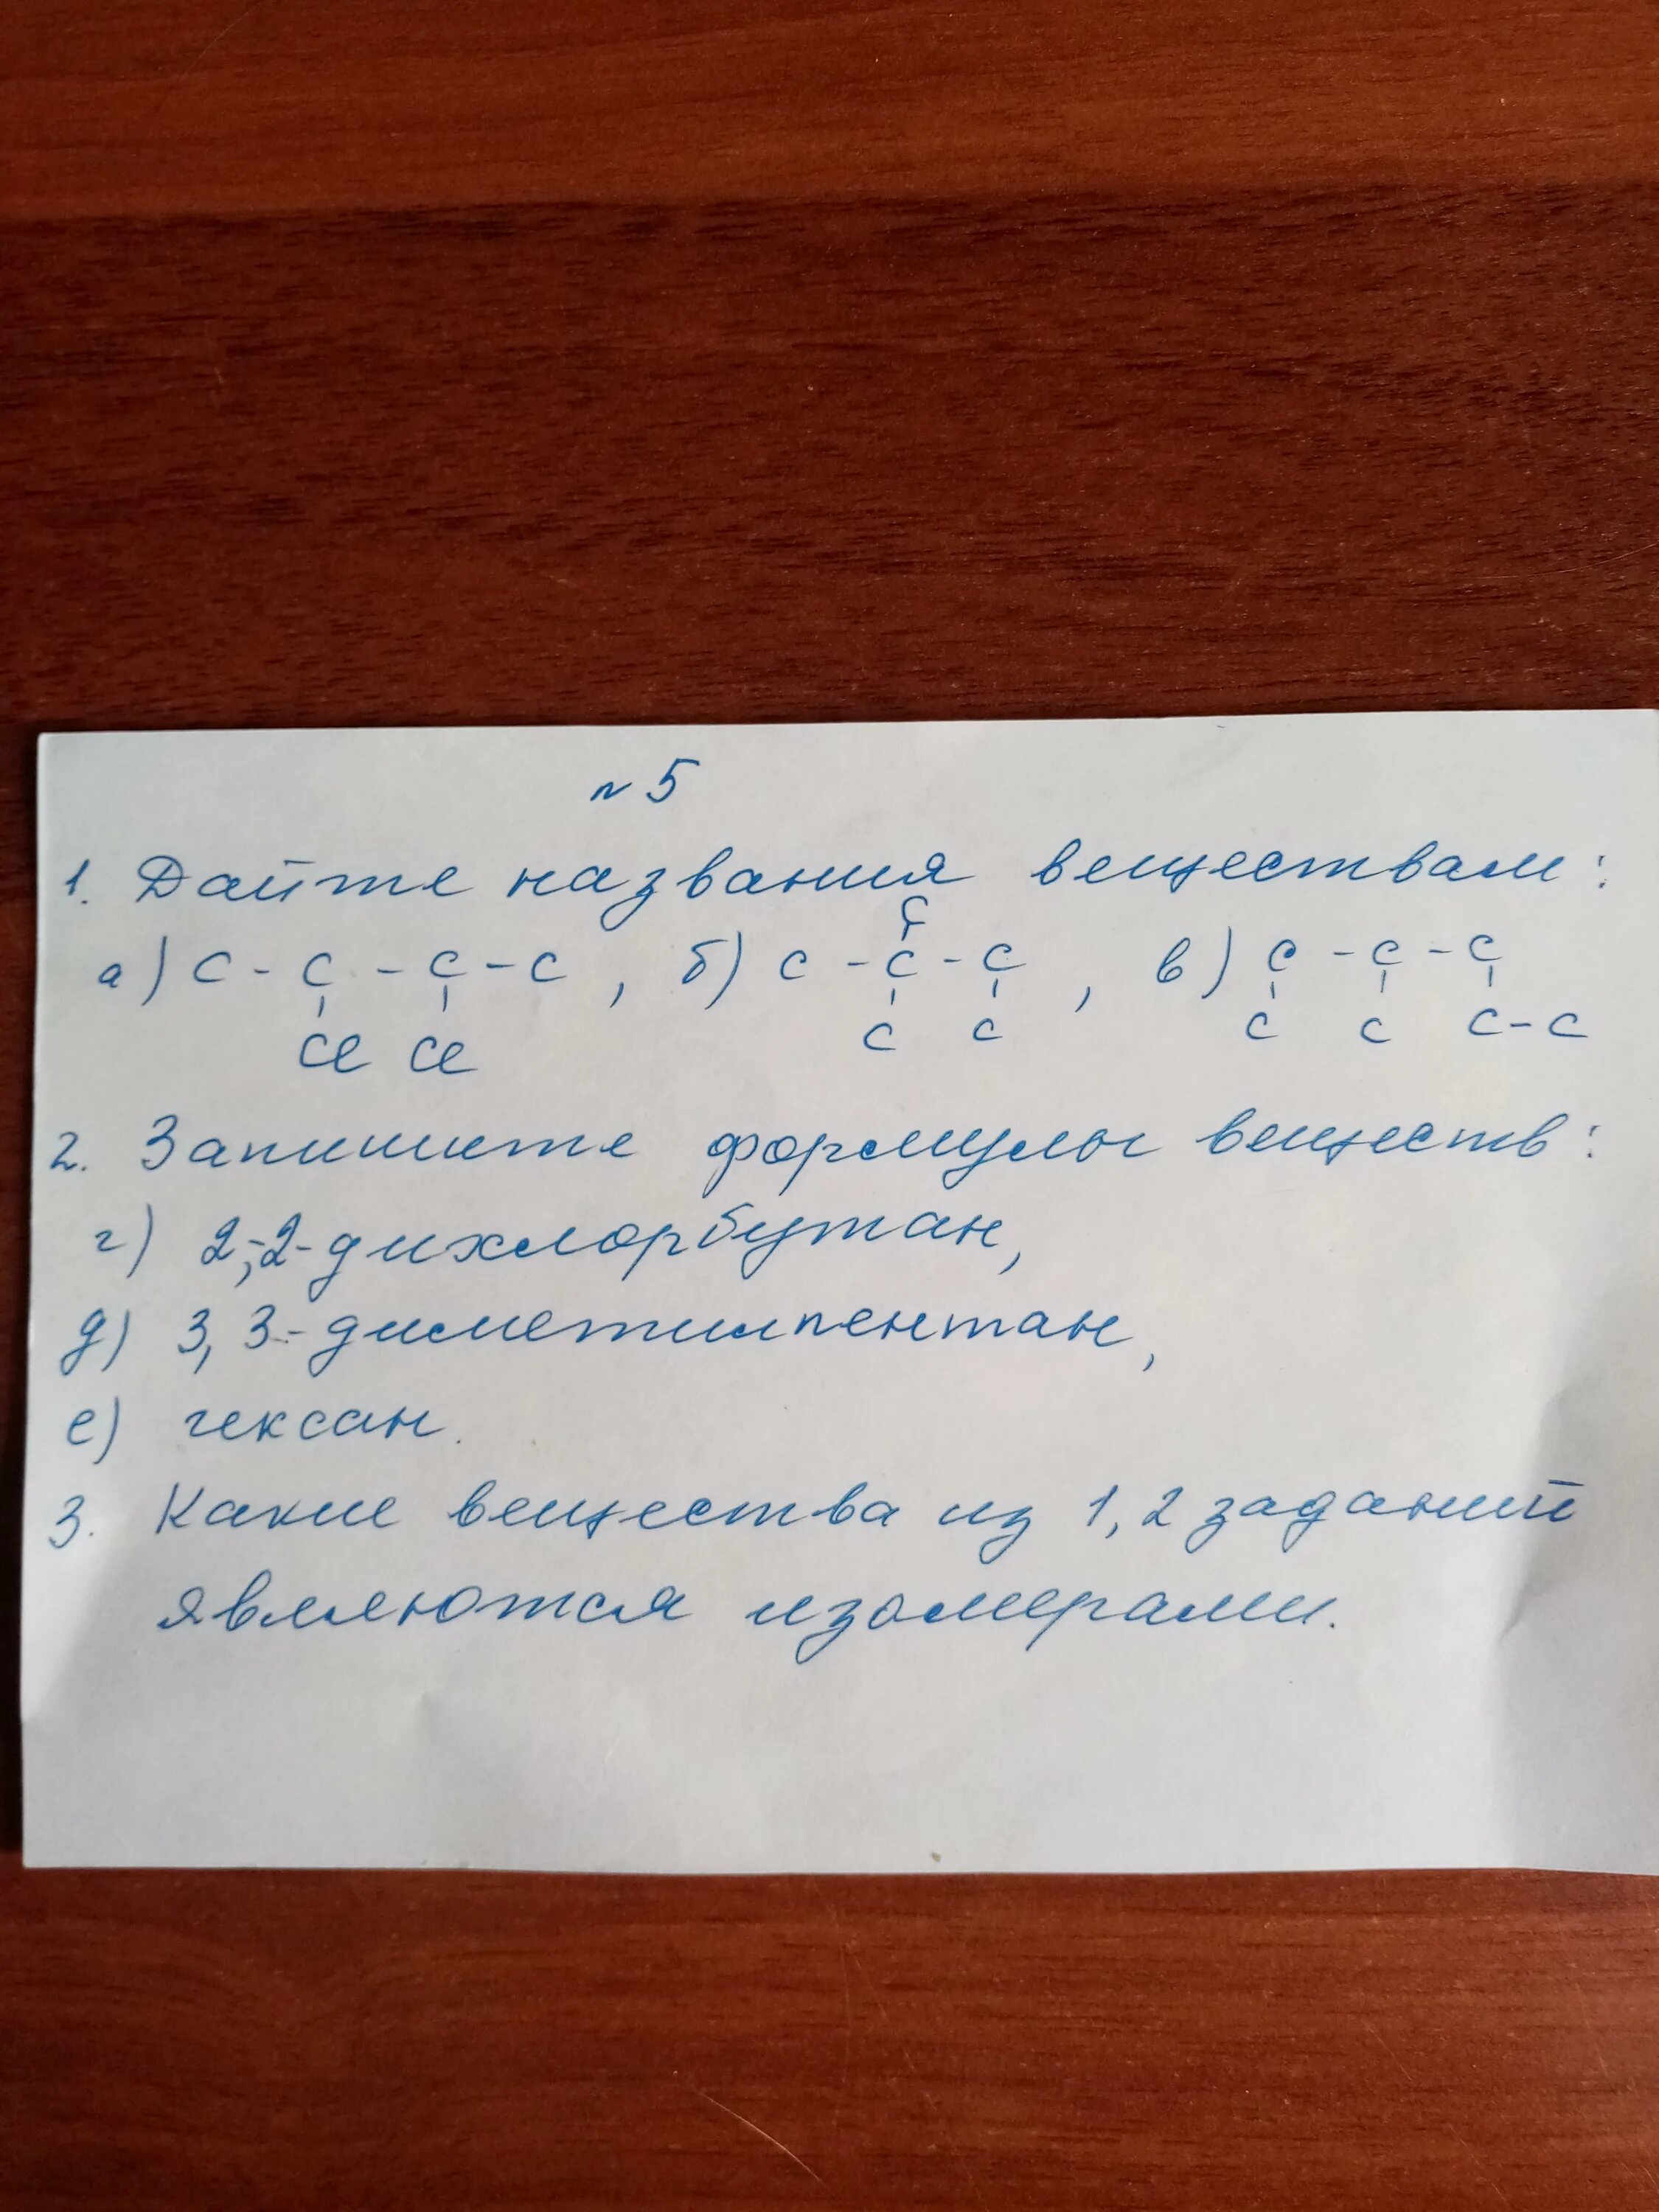 №5
1. Дайте названия веществам:
C
а) C - C - C - C , б) C - C - C , в) C - C - C
Cl Cl C C C C C-C
2. Запишите формулы веществ:
г) 2,2-дихлорбутан,
д) 3,3-диметилпентан,
е) гексан.
3. Какие вещества из 1,2 заданий
являются изомерами.